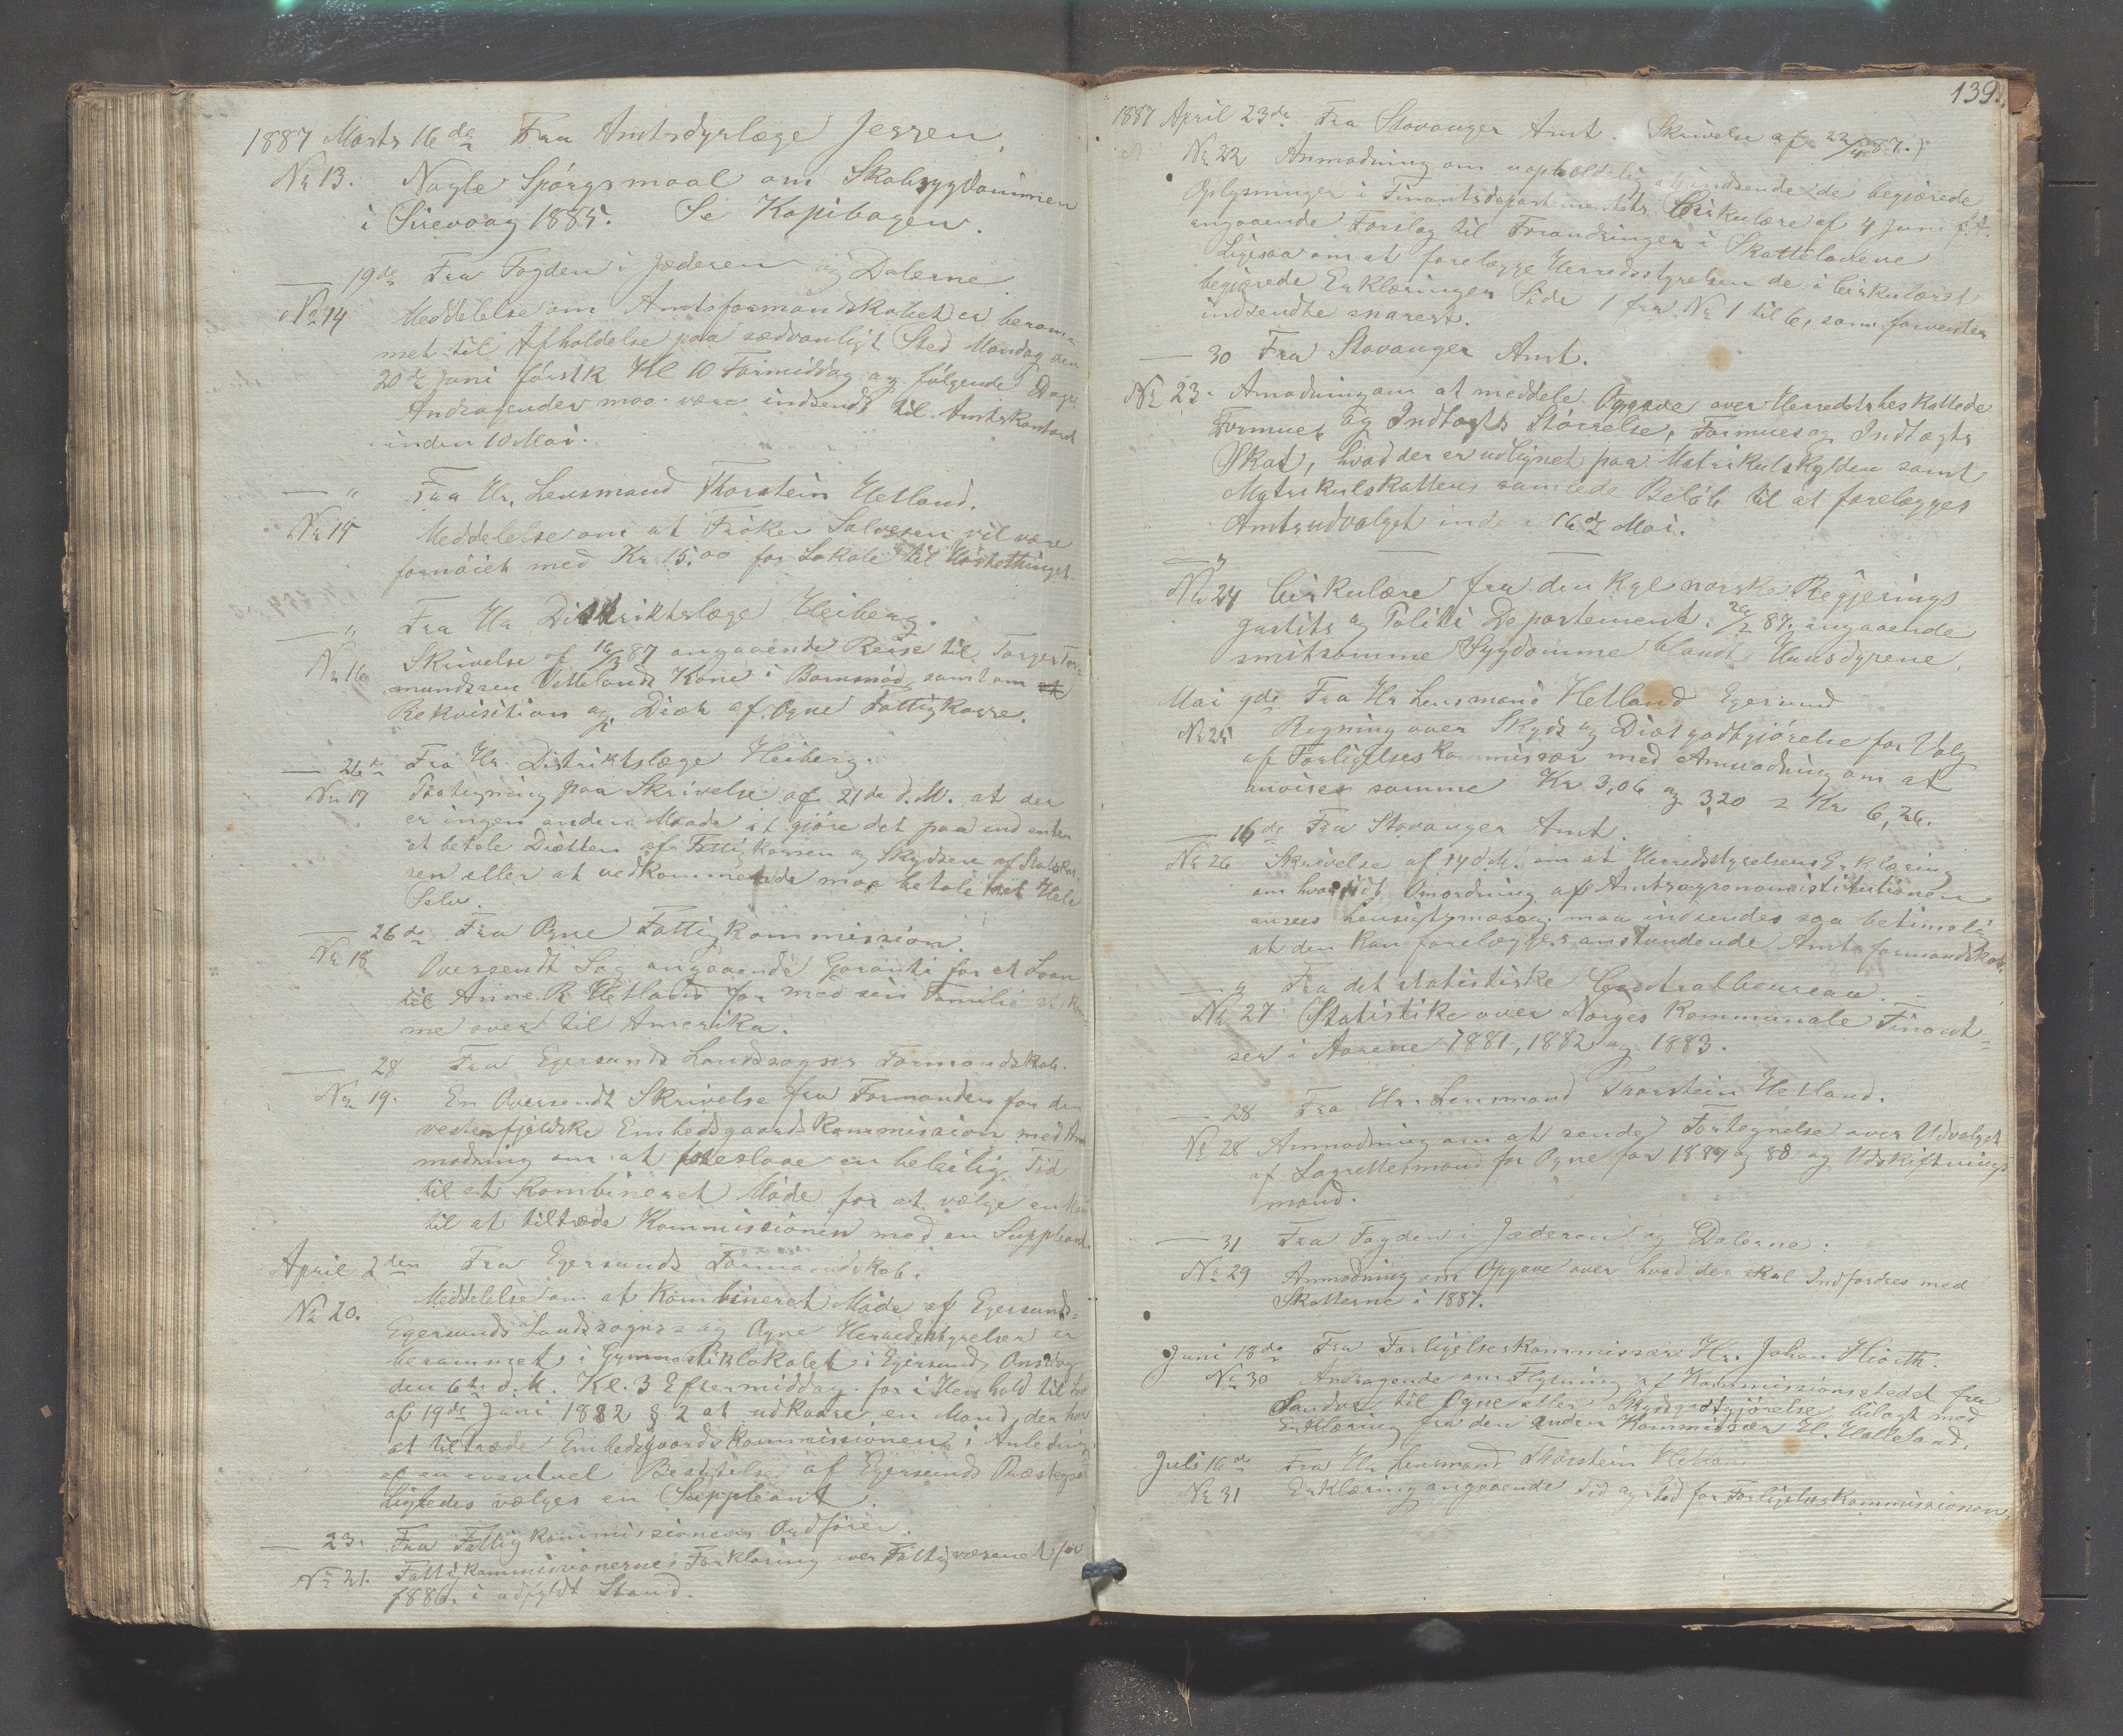 1887 Marts 16de Fra Amtsdyrlæge Jessen.
No 13. Nogle Spørgsmaal om Skabsygdommen
i Sirevaag 1885. Se Kopibogen.
— 19de Fra Fogden i Jæderen og Dalerne.
No 14 Meddelelse om Amtsformandskabet er beram-
met til Afholdelse paa sædvanligt Sted Mandag den
20de Juni førstk Kl 10 Formiddag og følgende Dage
Andragender maa være indsendt til Amtskontord
inden 10 Mai.
— " Fra Hr. Lensmand Thorstein Hetland.
No 15 Meddelelse om at Frøken Salvesen vil være
fornøiet med Kr. 15,00 for Lokale til Høstethinget.
— " Fra Hr Distriktslæge Heiberg.
No 16 Skrivelse af 16/3 87 angaaende Reise til Torger Tor-
mundssen Vettelands Kone i Barnsnød, samt om
Rekvisition og Diæt af Ogne Fattigkasse.
— 26de Fra Hr. Distriktslæge Heiberg.
No 17 Paategning paa Skrivelse af 21de d.M. at der
er ingen anden Maade at gjøre det paa end enten
at betale Diætten af Fattigkassen og Skydsen af Statskas-
sen eller at vedkommende maa betale det Hele
Selv.
— 26de Fra Ogne Fattigkommission.
No 18 Oversendt Sag angaaende Garanti for et Laan
til Anne R Hetland for med sin Familie at kom-
me over til Amerika.
— 28 Fra Egersunds Landsogns Formandskab.
No 19. En Oversendt Skrivelse fra Formanden for den
vestenfjeldske Embedsgaards Kommission med An-
modning om at foreslaae en beleilig Tid
til et Kombineret Møde for at vælge en Man
til at tiltræde Kommissionen med en Suppleant.
April 2den Fra Egersunds Formandskab.
No 20. Meddelelse om at Kombineret Møde af Egersunds-
Egersunds Landsogns- og Ogne Herredsstyrelser er
berammet i Gymnastiklokalet i Egersund, Onsdag
den 6te d.M. Kl. 3 Eftermiddag for i Henhold til Lov
af 19de Juni 1882 § 2 at udkaare en Mand, der har
at tiltræde Embedsgaardskommissionen i Anledning
af en eventuel Besigtelse af Egersunds Præstegaard
ligeledes vælges en Suppleant.
— 23. Fra Fattigkommissionens Ordfører.
No 21. Fattigkommissionernes Forklaring over Fattigvæsenet for
1886. i udfyldt Stand.
139.
1887 April 23de Fra Stavanger Amt. Skrivelse af 22/4 87.)
No 22 Anmodning om uopholdelig at indsende de begjærede
Oplysninger i Finantsdepartementets Cirkulære af 4 Juni f.A.
angaaende Forslag til Forandringer i Skattelovene
Ligesaa om at forelægge Herredsstyrelsen de i Cirkulæret
begjærede Erklæringer Side 1 fra No 1 til 6, som forventes
indsendte snarest.
— 30 Fra Stavanger Amt.
No 23. Amodning om at meddele Opgave over Herredets beskattede
Formues og Indtægts Størrelse, Formues og Indtægts
Skat, hvad der er udlignet paa Matrikulskylden samt
Matrikulskattens samlede Beløb til at forelægges
Amtsudvalget inden 16de Mai.
— "
No 24 Cirkulære fra den kgl norske Regjerings
Justits og Politi Departement. 26/2 87. angaaende
smitsomme Sygdomme blandt Huusdyrene.
Mai 9de Fra Hr Lensmand Hetland Egersund
No 25 Regning over Skyds og Diætgodtgjørelse for Valg
af Forligelseskommissær med Anmodning om at
anvises samme Kr 3,06 og 3,20 = Kr 6,26.
— 16de Fra Stavanger Amt.
No 26 Skrivelse af 14 d.M. om at Herredsstyrelsens Erklæring
om hvorvidt Omordning af Amtsagronomistitutionen
ansees hensigtsmæssig maa indsendes saa betimelig
at den kan forelægges anstundende Amtsformandskab.
— " Fra det statistiske Centralbureau.
No 27 Statistike over Norges Kommunale Finant-
ser i Aarene 1881, 1882 og 1883.
— 28 Fra Hr. Lensmand Thorstein Hetland.
No 28 Anmodning om at sende Fortegnelse over Udvalget
af Lagrettesmænd for Ogne for 1887 og 88 og Udskiftnings
mænd.
— 31 Fra Fogden i Jæderen og Dalerne.
No 29 Anmodning om Opgave over hvad der skal Indfordres med
Skatterne i 1887.
Juni 18de Fra Forligelseskommissær Hr. Johan Hiorth.
No 30 Andragende om Flytning af Kommissionsstedet fra
til Ogne eller Skydsgodtgjørelse bilagt med
Erklæring fra den anden Kommissær H. Helleland.
Juli 16de Fra Hr Lensmand Thorstein Hetland
No 31 Erklæring angaaende Tid og Sted for Forligelseskommissionen.